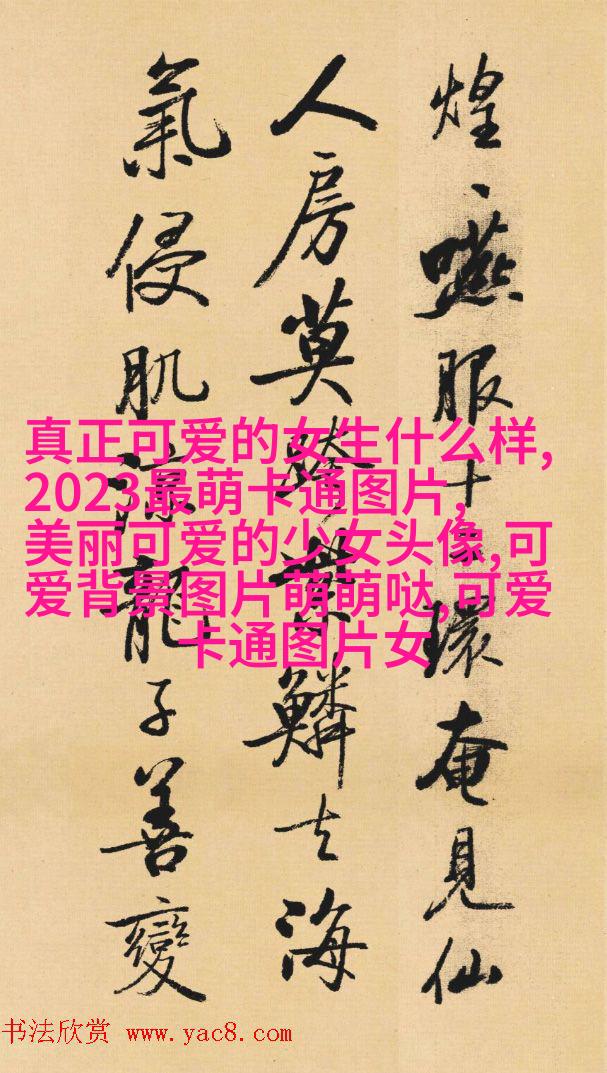 煌、嚥服十二環奄見仙
人房莫跨紫鱗去海
氣侵肌涼龍子善變
真正可爱的女生什么样,
2023最萌卡通图片,
美丽可爱的少女头像,可
爱背景图片萌萌哒,可爱
卡通图片女
书法欣赏 www.yac8.com